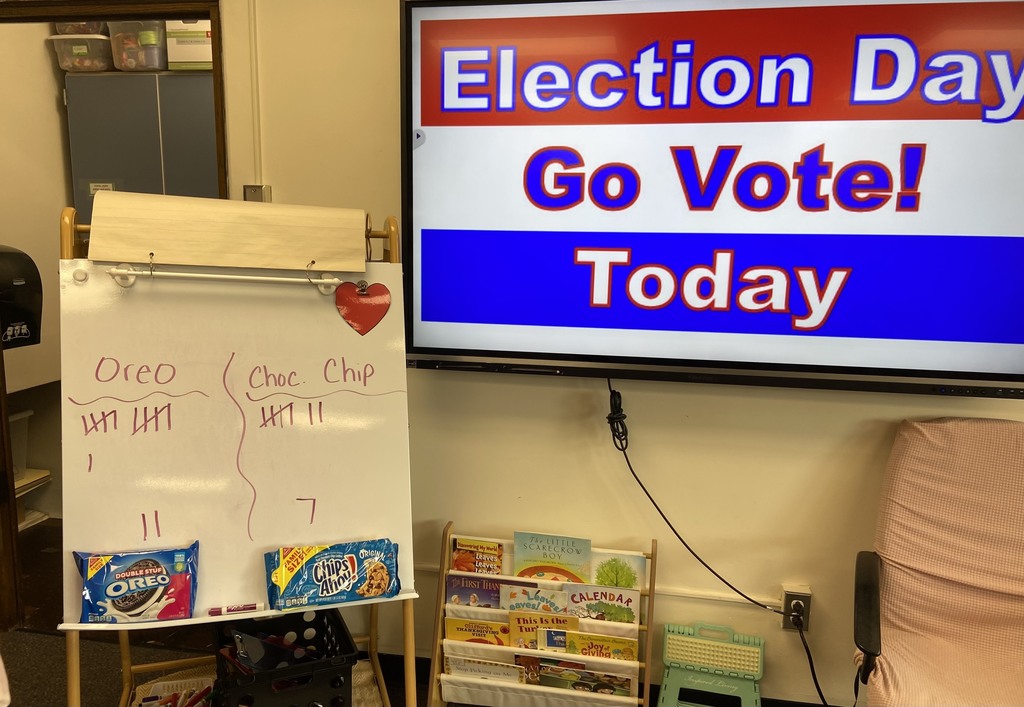 Election Day
Go Vote!
Today
Oreo
Choc. Chip
11
7
DOUBLE STUF
OREO
FAMILY SIZE!
ORIGINAL
Chips Ahoy!
THE LITTLE
SCARECROW
BOY
Discovering My World
Leaves
Leaves
Leaves
CALENDAR
Clifford's
THANKSGIVING
VISIT
This Is the
Joy of
Giving